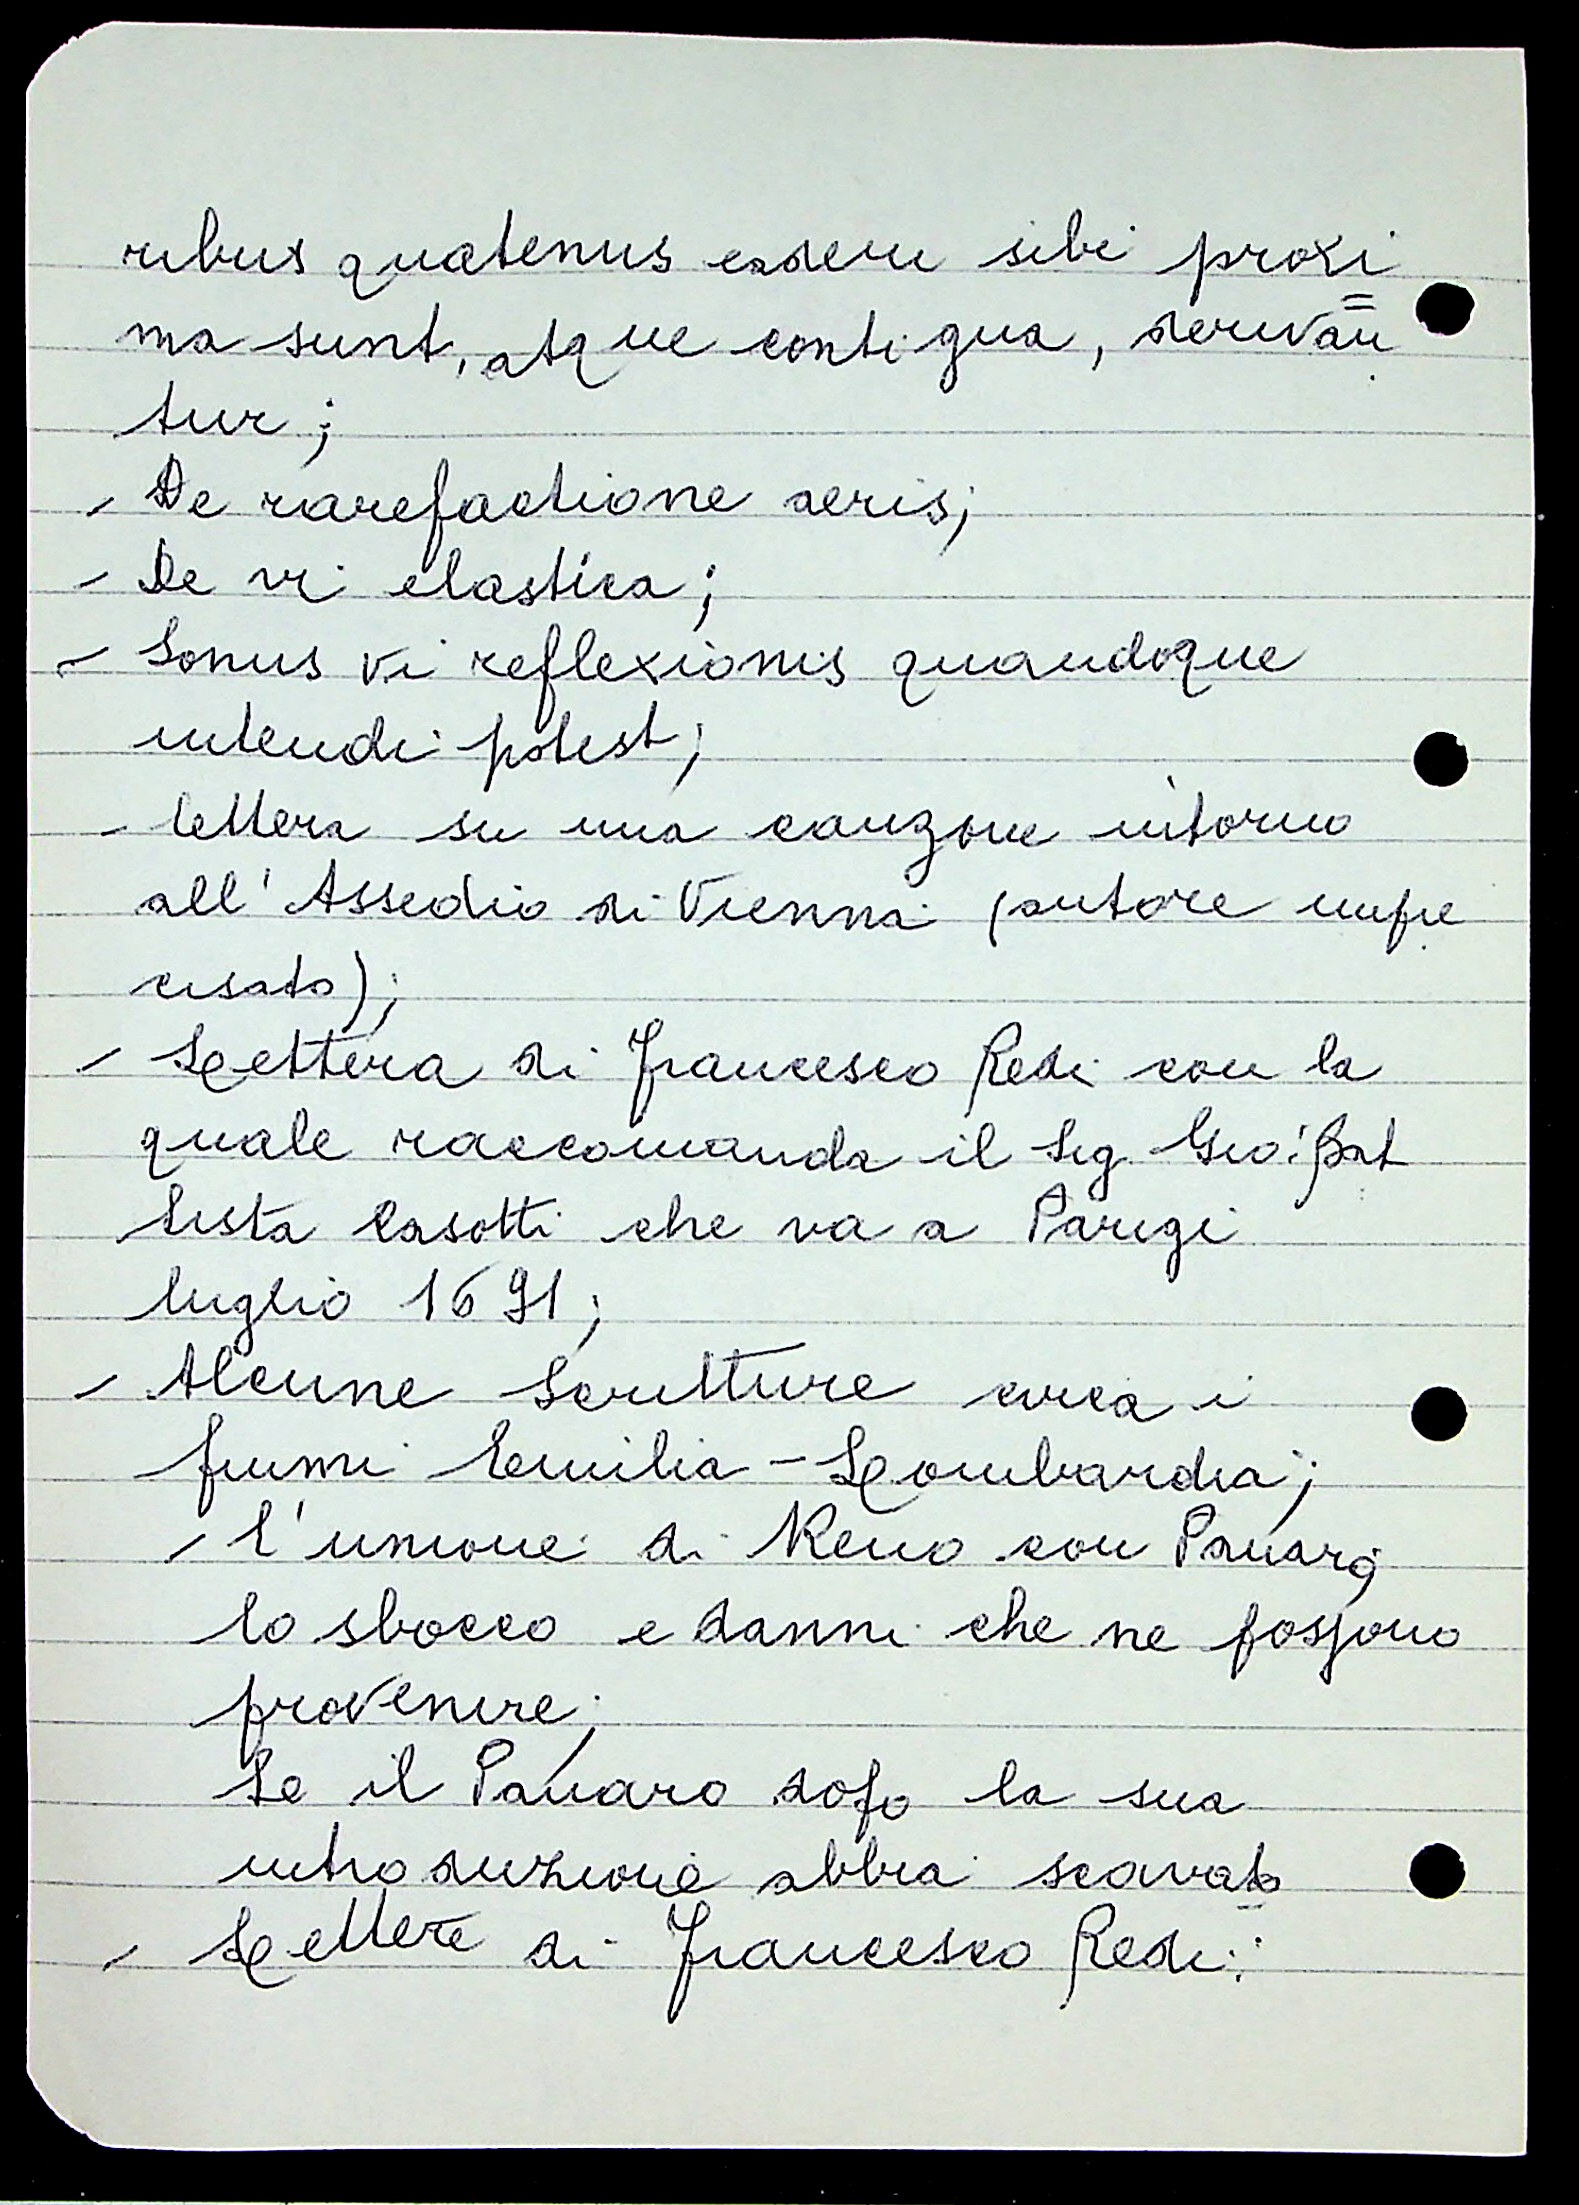 ribus quatenus eadem sibi proxi=
ma sunt, atque contigua, derivan
tur;
- De rarefactione aeris;
- De vi elastica;
- Sonus vi reflexionis quandoque
intendi potest;
- lettera su una canzone intorno
all'Assedio di Vienna (autore impre
cisato);
- Lettera di Francesco Redi con la
quale raccomanda il Sig. Gio: Bat
tista Casotti che va a Parigi
luglio 1691;
- Alcune Scritture circa i
fiumi Emilia-Lombardia;
- l'unione di Reno con Panaro,
lo sbocco e danni che ne possono
provenire;
Se il Panaro dopo la sua
introduzione abbia scavato
- Lettere di Francesco Redi: